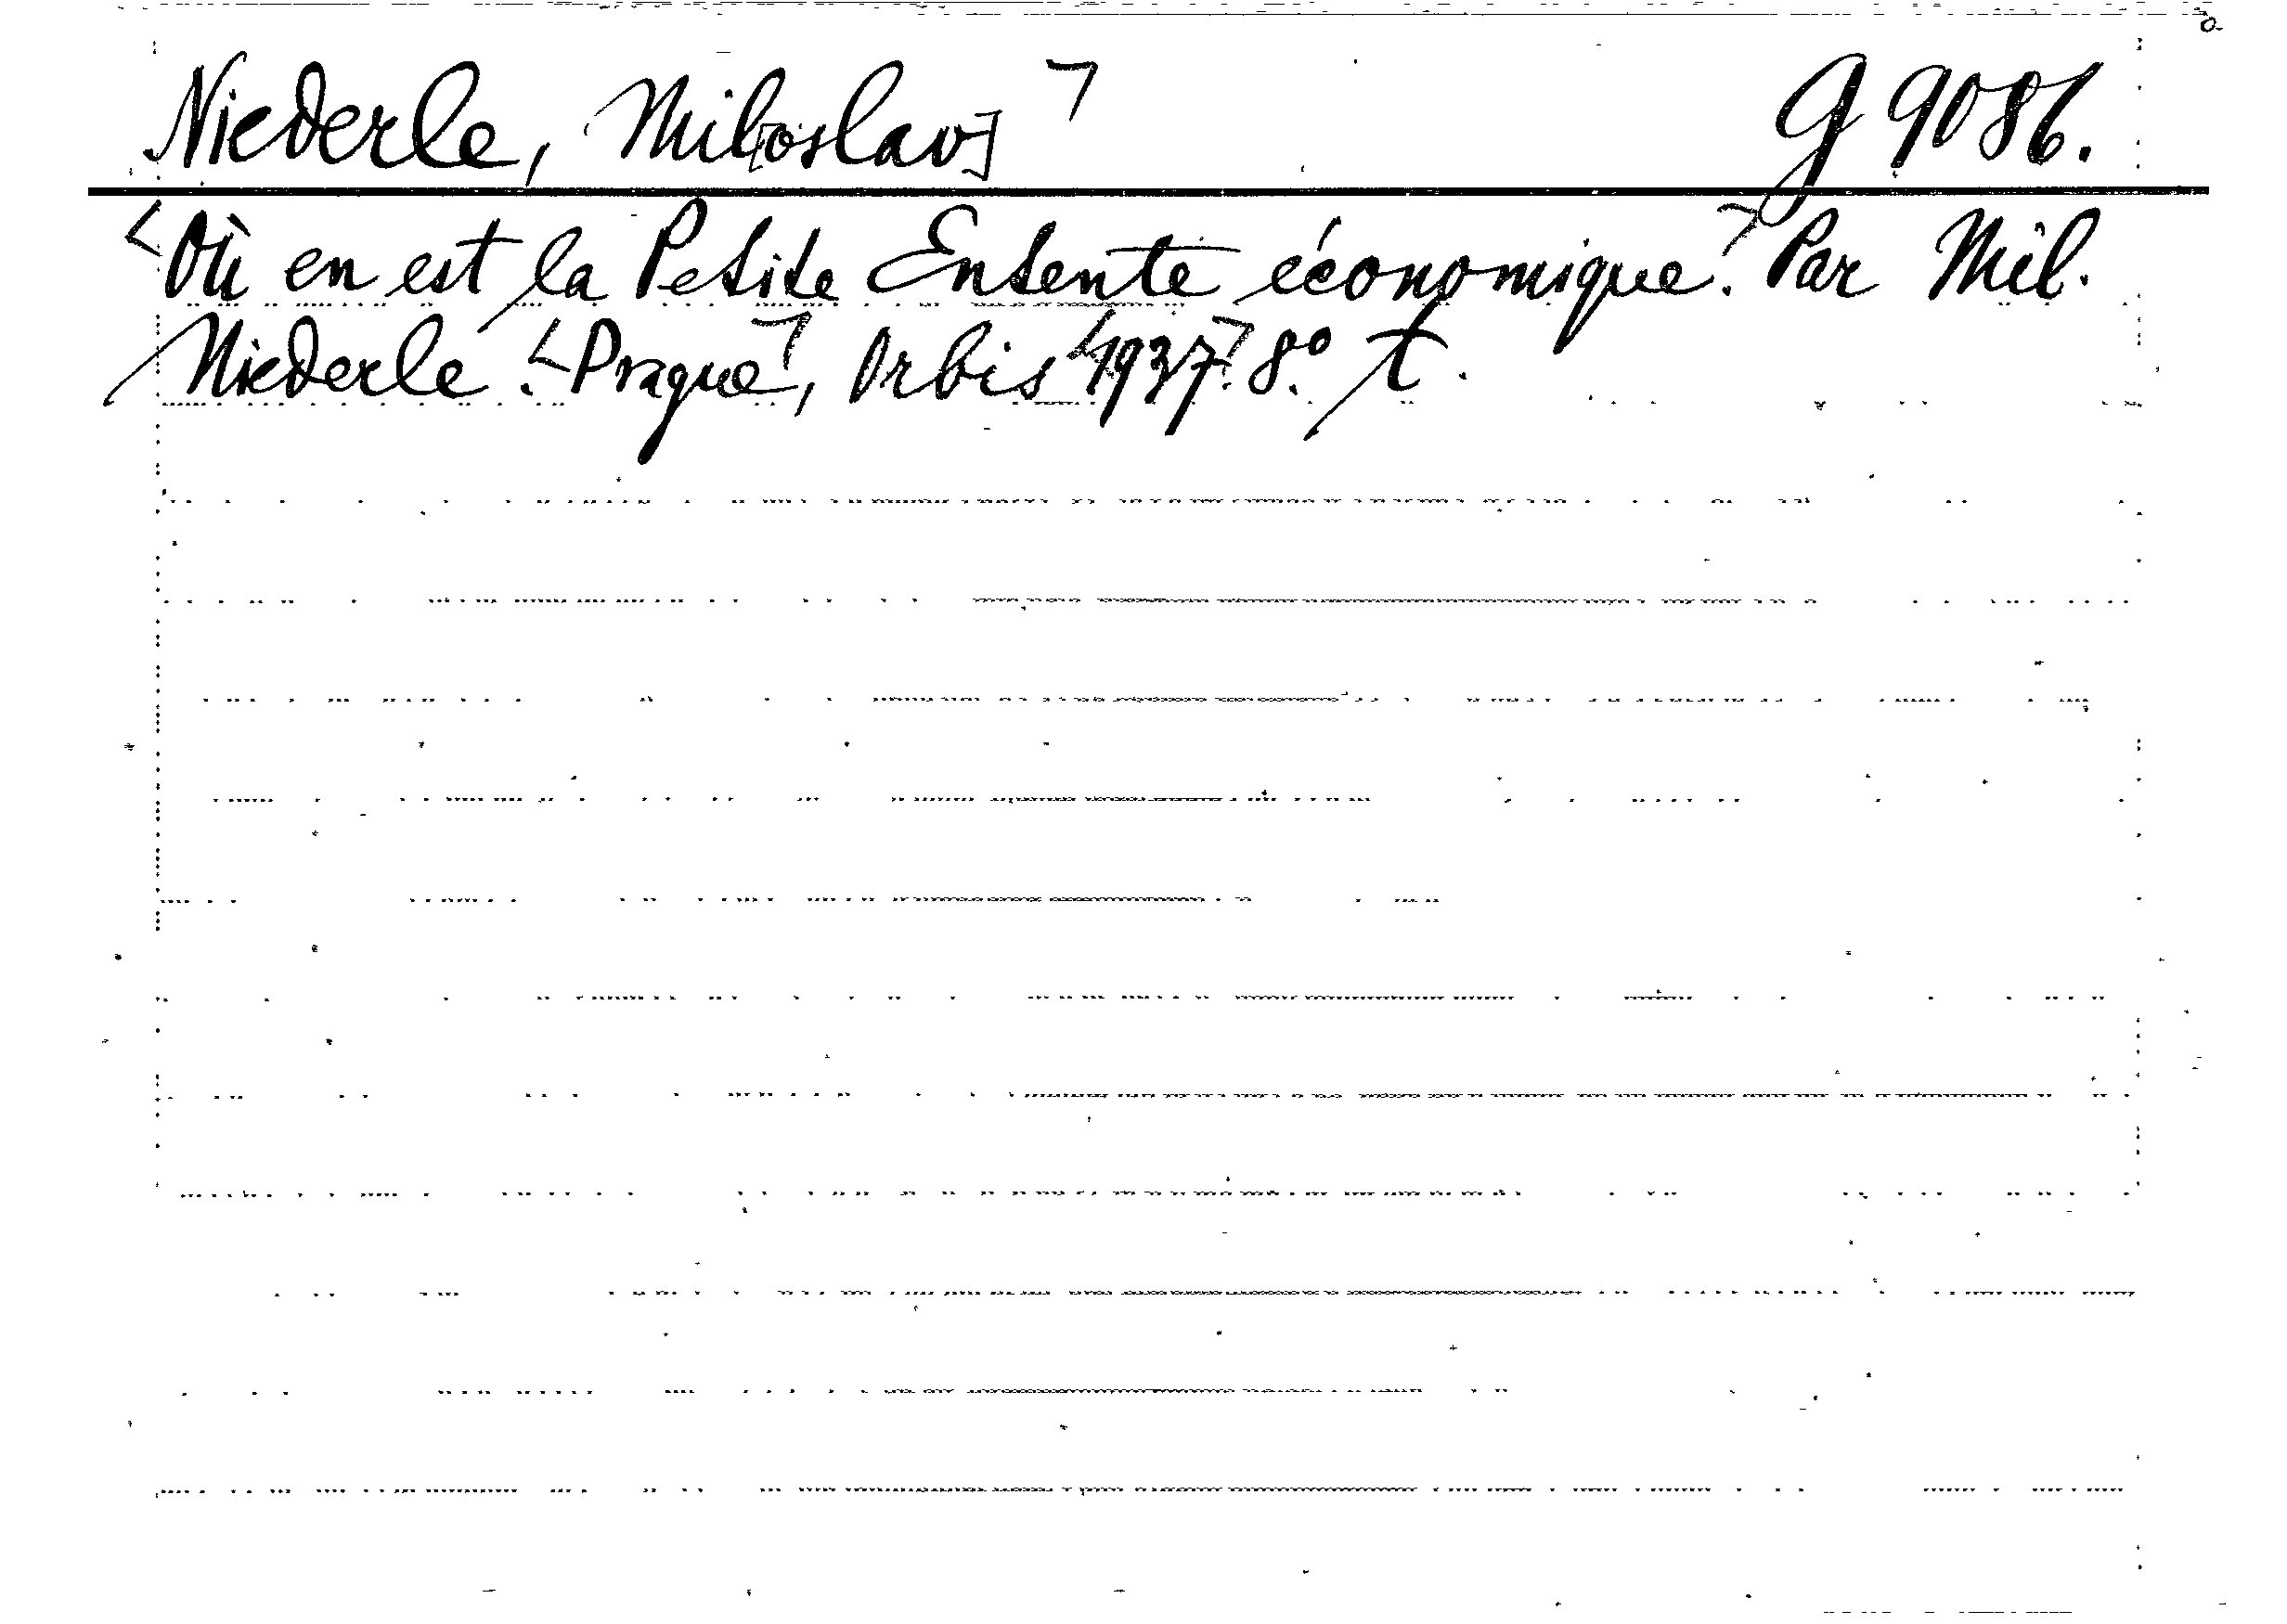 Niederle, Mil[oslav] G 9086.
Où en est la Petite Entente économique? Par Mil.
Niederle. Prague, Orbis 1937. 8° t.